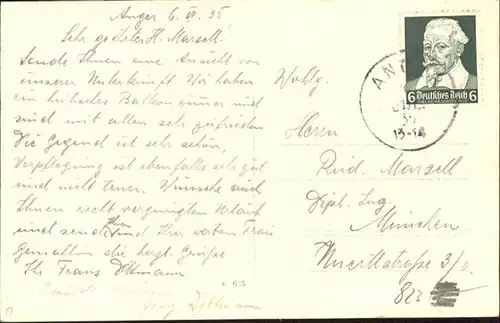 Anger 6. VI. 35
Sehr geehrter H. Marsell!
Sende Ihnen eine Ansicht von
unserer Unterkunft. Wir haben
ein hübsches Balkonzimmer und
sind mit allem sehr zufrieden
Die Gegend ist sehr schön,
Verpflegung ist ebenfalls sehr gut
und nicht teuer. Wünsche auch
Ihnen recht vergnügten Urlaub
und sende Ihnen und Ihrer werten Frau
Gemahlin die herzl. Grüße
Ihr Franz Dittmann
Wohlg.
Herrn
Rud. Marsell
Dipl. Ing.
München
3/0
823
AN
35
13-14
6 Deutsches Reich 6